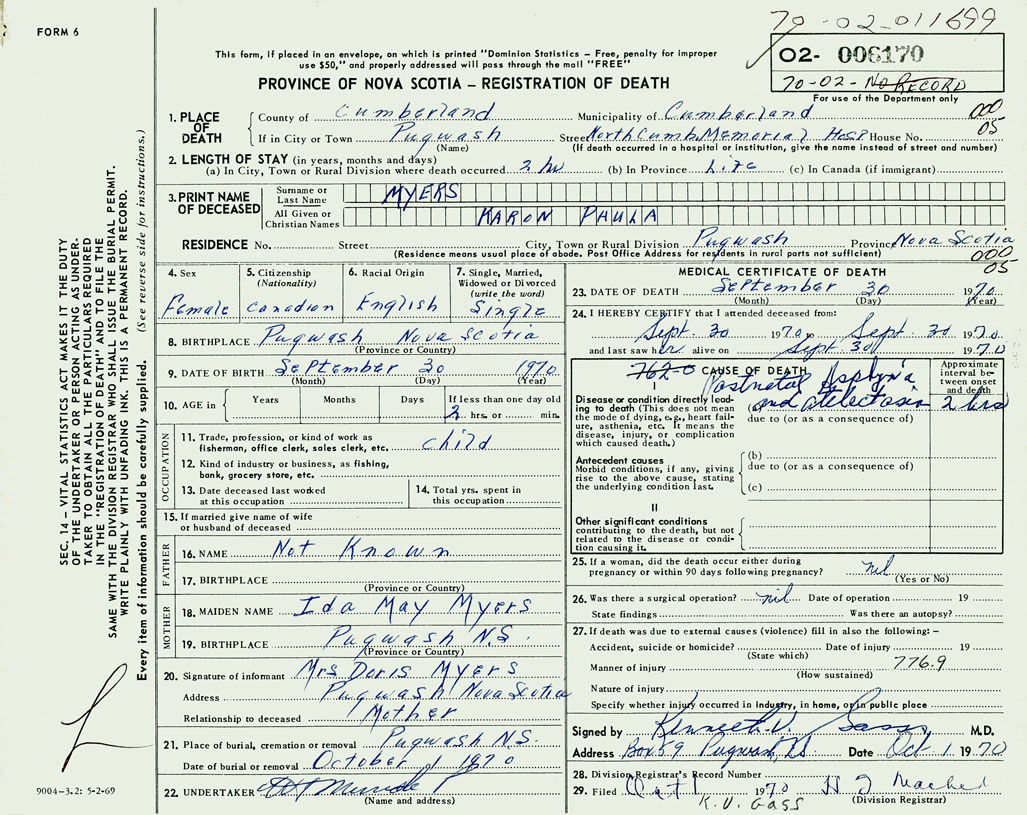 70-02-011699
FORM 6
O2- 006170
70-02- NO RECORD
For use of the Department only
This form, if placed in an envelope, on which is printed "Dominion Statistics – Free, penalty for improper
use $50," and properly addressed will pass through the mail "FREE"
PROVINCE OF NOVA SCOTIA – REGISTRATION OF DEATH
1. PLACE OF DEATH
County of Cumberland Municipality of Cumberland 000
If in City or Town Pugwash Street North Cumb Memorial Hosp House No. 05
(Name) (If death occurred in a hospital or institution, give the name instead of street and number)
2. LENGTH OF STAY (in years, months and days)
(a) In City, Town or Rural Division where death occurred 2 hr (b) In Province Life (c) In Canada (if immigrant)
3. PRINT NAME OF DECEASED
Surname or Last Name MYERS
All Given or Christian Names KARON PAULA
RESIDENCE No. Street City, Town or Rural Division Pugwash Province Nova Scotia
(Residence means usual place of abode. Post Office Address for residents in rural parts not sufficient) 000
05
4. Sex Female
5. Citizenship (Nationality) Canadian
6. Racial Origin English
7. Single, Married, Widowed or Divorced (write the word) Single
8. BIRTHPLACE Pugwash Nova Scotia
(Province or Country)
9. DATE OF BIRTH September 30 1970
(Month) (Day) (Year)
10. AGE in Years Months Days If less than one day old
2 hrs. or min.
OCCUPATION
11. Trade, profession, or kind of work as
fisherman, office clerk, sales clerk, etc. child
12. Kind of industry or business, as fishing,
bank, grocery store, etc.
13. Date deceased last worked
at this occupation
14. Total yrs. spent in
this occupation
15. If married give name of wife
or husband of deceased
FATHER
16. NAME Not Known
17. BIRTHPLACE
(Province or Country)
MOTHER
18. MAIDEN NAME Ida May Myers
19. BIRTHPLACE Pugwash N.S.
(Province or Country)
20. Signature of informant Mrs Doris Myers
Address Pugwash Nova Scotia
Relationship to deceased Mother
21. Place of burial, cremation or removal Pugwash N.S.
Date of burial or removal October 1 1970
22. UNDERTAKER
(Name and address)
MEDICAL CERTIFICATE OF DEATH
23. DATE OF DEATH September 30 1970
(Month) (Day) (Year)
24. I HEREBY CERTIFY that I attended deceased from:
Sept. 30 1970 to Sept. 30 1970
and last saw her alive on Sept 30 1970
762.0 CAUSE OF DEATH
Approximate interval between onset and death
I
Postnatal Asphyxia
Disease or condition directly leading to death (This does not mean the mode of dying, e.g., heart failure, asthenia, etc. It means the disease, injury, or complication which caused death.)
(a) and atelectasis 2 hrs
due to (or as a consequence of)
Antecedent causes
Morbid conditions, if any, giving rise to the above cause, stating the underlying condition last.
(b)
due to (or as a consequence of)
(c)
II
Other significant conditions
contributing to the death, but not related to the disease or condition causing it.
25. If a woman, did the death occur either during
pregnancy or within 90 days following pregnancy? nil
(Yes or No)
26. Was there a surgical operation? nil Date of operation 19
State findings Was there an autopsy?
27. If death was due to external causes (violence) fill in also the following: –
Accident, suicide or homicide? Date of injury 19
(State which) 776.9
Manner of injury
(How sustained)
Nature of injury
Specify whether injury occurred in industry, in home, or in public place
Signed by Kenneth V. Gass M.D.
Address Box 59 Pugwash, N.S. Date Oct 1 1970
28. Division Registrar's Record Number
29. Filed Oct 1 1970
K. V. GASS (Division Registrar)
SEC. 14 – VITAL STATISTICS ACT MAKES IT THE DUTY
OF THE UNDERTAKER OR PERSON ACTING AS UNDER-
TAKER TO OBTAIN ALL THE PARTICULARS REQUIRED
IN THE "REGISTRATION OF DEATH" AND TO FILE THE
SAME WITH THE DIVISION REGISTRAR WHO SHALL ISSUE THE BURIAL PERMIT.
WRITE PLAINLY WITH UNFADING INK. THIS IS A PERMANENT RECORD.
Every item of information should be carefully supplied. (See reverse side for instructions.)
9004-3.2: 5-2-69